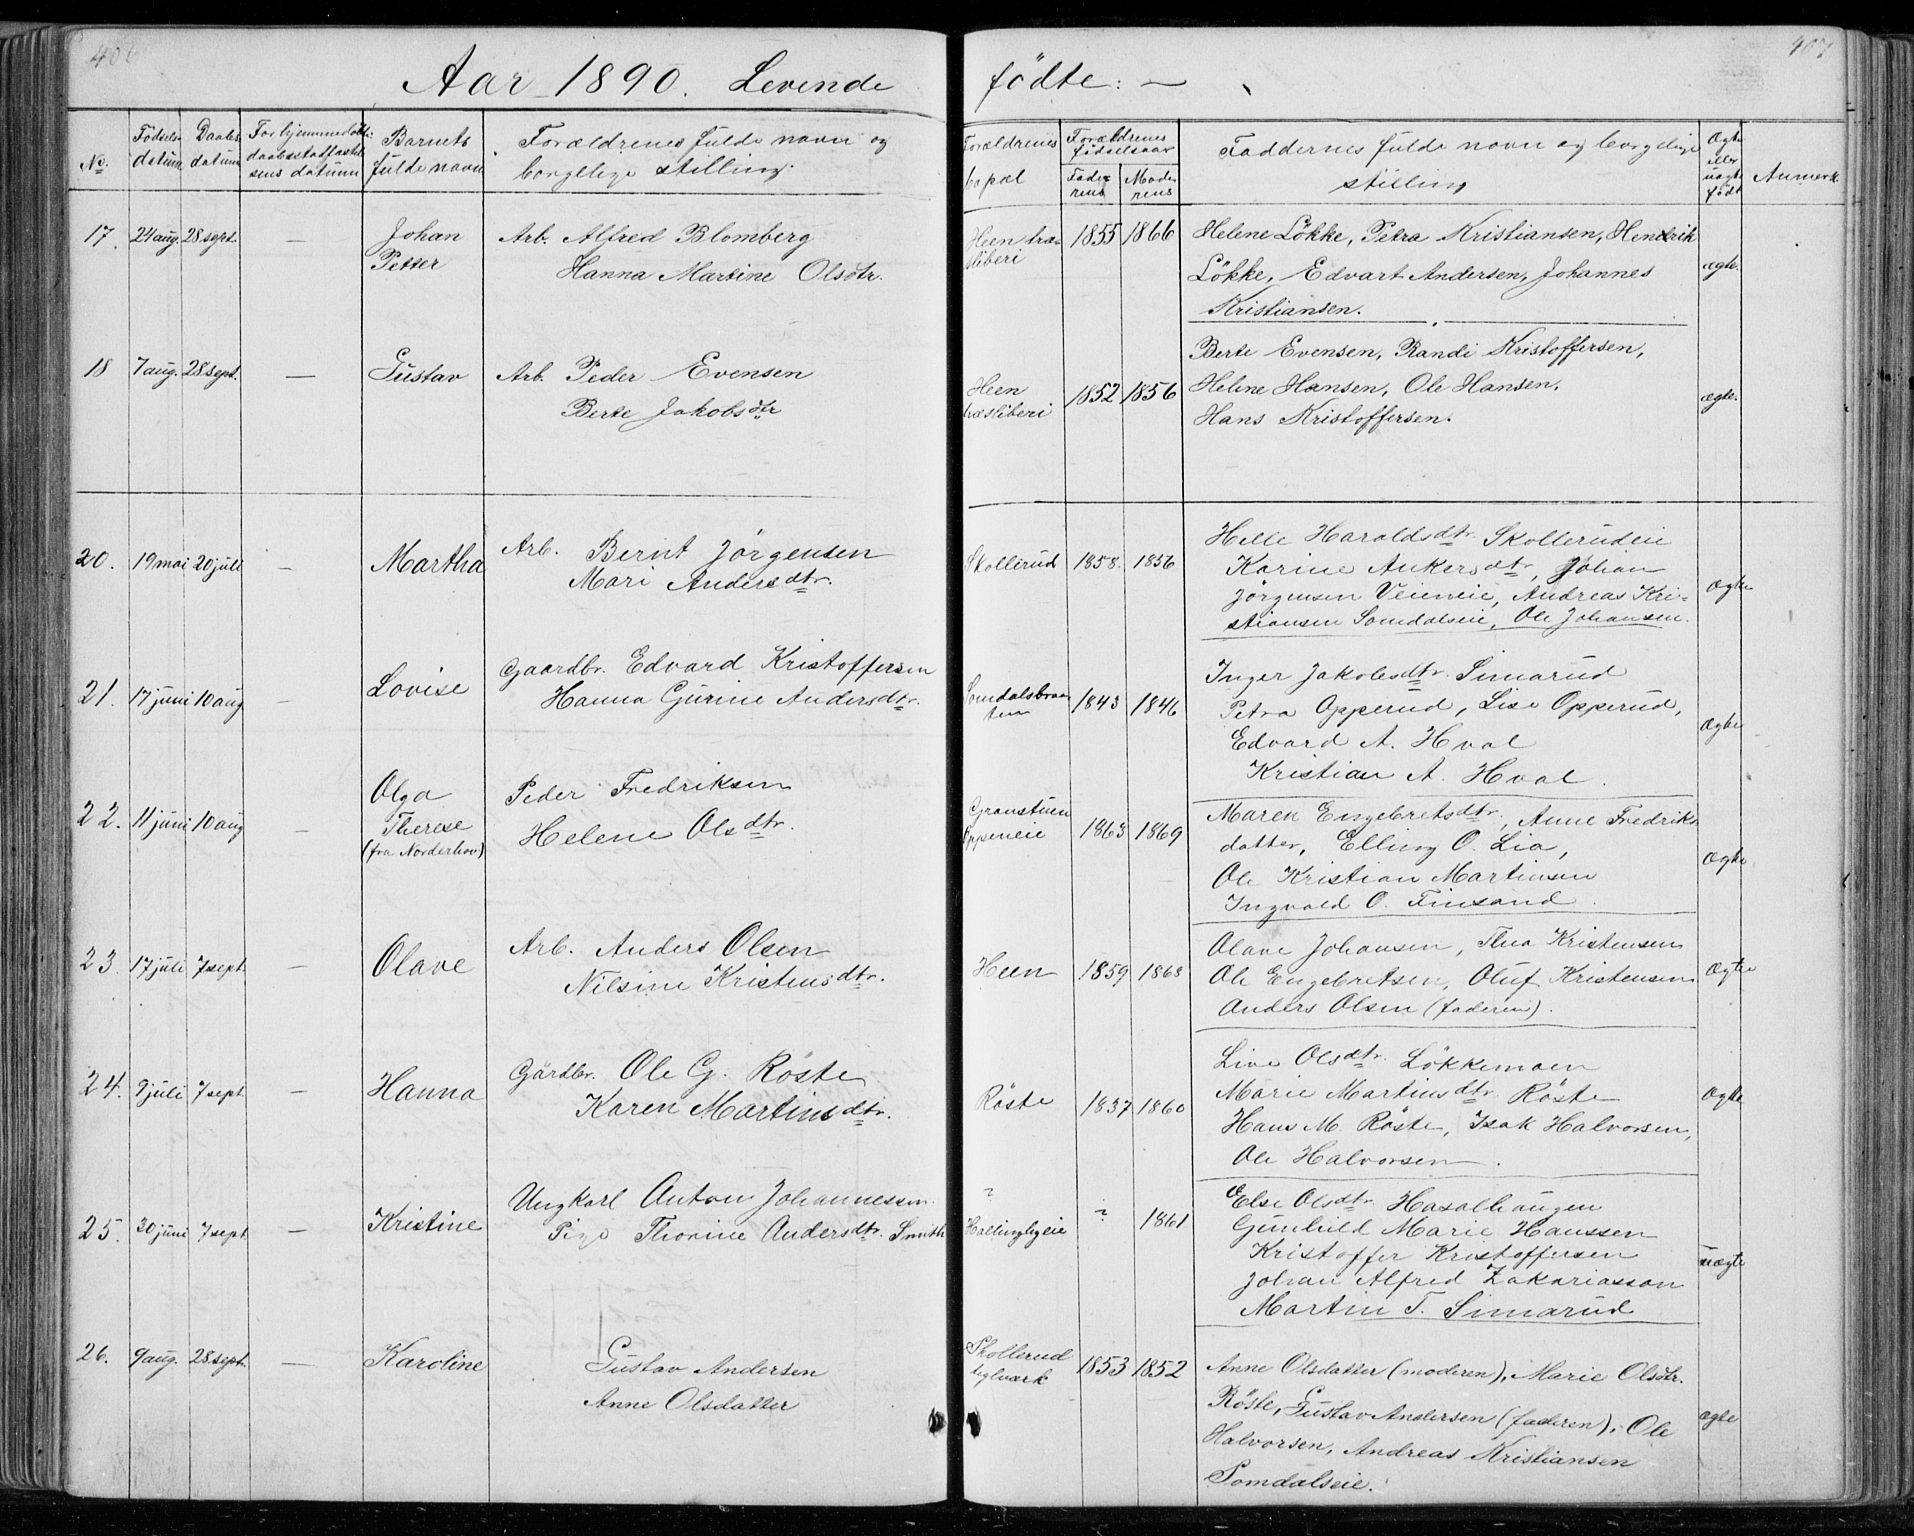 406
407
Aar 1890. Levende fødte: —
No.
Fødsels datum
Daabs datum
For hjemmedøbte: daabsstadfæstelsens datum
Barnets fulde navn
Forældrenes fulde navn og borgelige stilling.
Forældrenes bopæl
Forældrenes fødselsaar
Faderens
Moderens
Faddernes fulde navn og borgelige stilling
Ægte eller uægte født
Anmærk.
17. 24 aug. 28 sept. — Johan Petter
Arb. Alfred Blomberg
Hanna Martine Olsdtr.
Heen træsliberi 1855 1866
Helene Løkke, Petra Kristiansen, Hendrik
Løkke, Edvart Andersen, Johannes
Kristiansen.
ægte.
18 7 aug. 28 sept. — Gustav
Arb. Peder Evensen
Berte Jakobsdtr
Heen træsliberi 1852 1856
Berte Evensen, Randi Kristoffersen,
Helene Hansen, Ole Hansen,
Hans Kristoffersen.
ægte.
20. 19 mai 20 juli — Martha
Arb. Bernt Jörgensen
Mari Andersdtr.
Skollerud 1858. 1856
Helle Haraldsdtr. Skollerudeie
Karine Ankersdtr, Johan
Jörgensen Veieneie, Andreas Kri-
stiansen Somdalseie, Ole Johansen.
Ægte
21. 17 juni 10 aug — Lovise
Gaardbr. Edvard Kristoffersen
Hanna Gurine Andersdtr.
Somdalsbraaten 1843 1846
Inger Jakobsdtr. Simarud
Petra Opperud, Lise Opperud,
Edvard A. Hval
Kristian A. Hval.
Ægte
22. 11 juni 10 aug — Olga Therese (fra Norderhov)
Peder Fredriksen
Helene Olsdtr.
Granstuen Oppeneie 1863 1869
Maren Engebretsdtr., Anne Fredriks
datter, Elling O. Lia,
Ole Kristian Martinsen
Ingvald O. Finsand.
Ægte
23. 17 juli 7 sept — Olave
Arb. Anders Olsen
Nilsine Kristensdtr.
Heen 1859 1868
Olave Johansen, Thea Kristensen
Ole Engebretsen, Oluf Kristensen
Anders Olsen (faderen).
Ægte
24. 9 juli 7 sept — Hanna
Gårdbr. Ole G. Röste
Karen Martinsdtr.
Röste 1837 1860
Live Olsdtr. Lökkemoen
Marie Martinsdtr. Röste
Hans M. Röste, Isak Halvorsen,
Ole Halvorsen.
Ægte
25. 30 juni 7 sept — Kristine
Ungkarl Anton Johannessen
Pige Thorine Andersdtr. Smith
?
Hallingbyeie ? 1861
Else Olsdtr. Hasalhaugen
Gunhild Marie Hanssen
Kristoffer Kristoffersen
Johan Alfred Zakariasson
Martin T. Simarud
uægte
26. 9 aug. 28 sept. — Karoline
Gustav Andersen
Anne Olsdatter
Skollerud teglværk 1853 1852
Anne Olsdatter (moderen), Marie Olsdtr.
Röste, Gustav Andersen (faderen), Ole
Halvorsen, Andreas Kristiansen
Somdalseie.
ægte